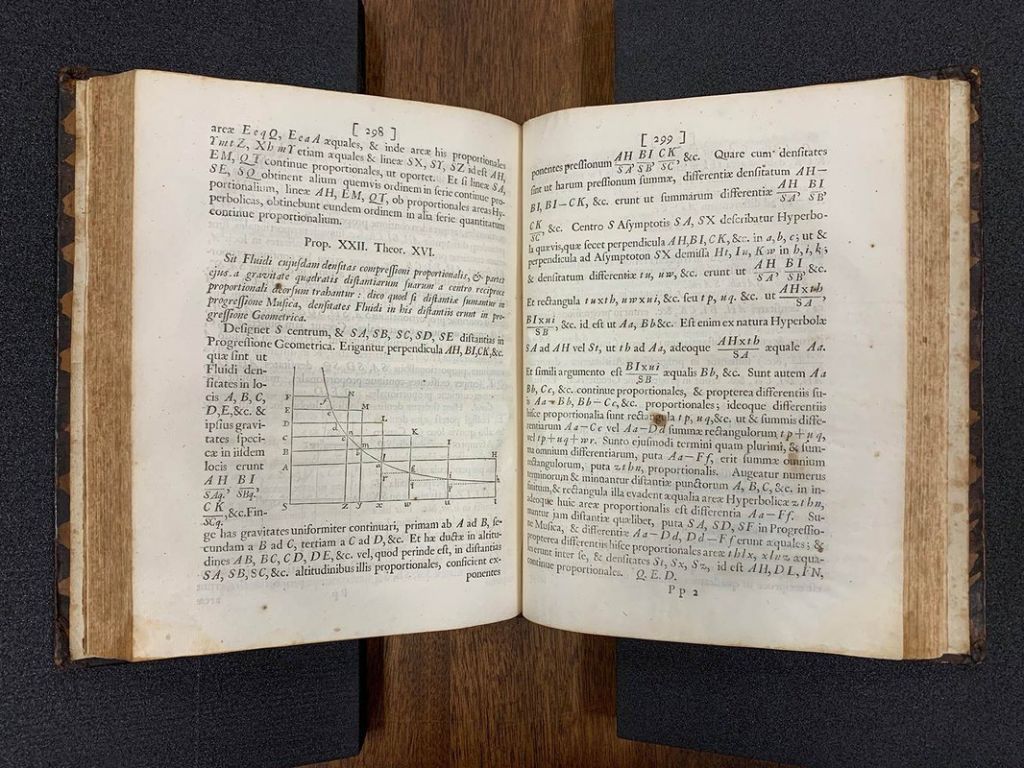 [ 298 ]
areæ E e q Q, E e a A æquales, & inde areæ his proportionales
Y m t Z, X h m Y etiam æquales & lineæ SX, SY, SZ id est AH,
EM, QT continue proportionales, ut oportet. Et si lineæ SA,
SE, SQ obtinent alium quemvis ordinem in serie continue pro-
portionalium, lineæ AH, EM, QT, ob proportionales areas Hy-
perbolicas, obtinebunt eundem ordinem in alia serie quantitatum
continue proportionalium.
Prop. XXII. Theor. XVI.
Sit Fluidi cujusdam densitas compressioni proportionalis, & partes
ejus a gravitate quadratis distantiarum suarum a centro reciproce
proportionali deorsum trahantur : dico quod si distantiæ sumantur in
progressione Musica, densitates Fluidi in his distantiis erunt in pro-
gressione Geometrica.
Designet S centrum, & SA, SB, SC, SD, SE distantias in
Progressione Geometrica. Erigantur perpendicula AH, BI, CK, &c.
quæ sint ut
Fluidi den-
sitates in lo-
cis A, B, C,
D, E, &c. &
ipsius gravi-
tates speci-
ficæ in iisdem
locis erunt
AH BI
SAq.' SBq.'
CK
SCq. , &c. Fin-
ge has gravitates uniformiter continuari, primam ab A ad B, se-
cundam a B ad C, tertiam a C ad D, &c. Et hæ ductæ in altitu-
dines AB, BC, CD, DE, &c. vel, quod perinde est, in distantias
SA, SB, SC, &c. altitudinibus illis proportionales, conficient ex-
ponentes
F
E
D
C
B
A
S
N
M
L
K
I
H
z y x w u t
[ 299 ]
ponentes pressionum AH/SA, BI/SB, CK/SC, &c. Quare cum densitates
sint ut harum pressionum summæ, differentiæ densitatum AH—
BI, BI—CK, &c. erunt ut summarum differentiæ AH/SA, BI/SB,
CK/SC, &c. Centro S Asymptotis SA, SX describatur Hyperbo-
la quævis, quæ secet perpendicula AH, BI, CK, &c. in a, b, c; ut &
perpendicula ad Asymptoton SX demissa Ht, Iu, Kw in h, i, k;
& densitatum differentiæ tu, uw, &c. erunt ut AH/SA, BI/SB, &c.
Et rectangula tu×th, uw×ui, &c. seu tp, uq, &c. ut AH×th/SA,
BI×ui/SB, &c. id est ut Aa, Bb &c. Est enim ex natura Hyperbolæ
SA ad AH vel St, ut th ad Aa, adeoque AH×th/SA æquale Aa.
Et simili argumento est BI×ui/SB æqualis Bb, &c. Sunt autem Aa
Bb, Cc, &c. continue proportionales, & propterea differentiis su-
is Aa—Bb, Bb—Cc, &c. proportionales; ideoque differentiis
hisce proportionalia sunt rectangula tp, uq, &c. ut & summis diffe-
rentiarum Aa—Cc vel Aa—Dd summæ rectangulorum tp+uq,
vel tp+uq+wr. Sunto ejusmodi termini quam plurimi, & sum-
ma omnium differentiarum, puta Aa—Ff, erit summæ omnium
rectangulorum, puta zthn, proportionalis. Augeatur numerus
terminorum & minuantur distantiæ punctorum A, B, C, &c. in in-
finitum, & rectangula illa evadent æqualia areæ Hyperbolicæ zthn,
adeoque huic areæ proportionalis est differentia Aa—Ff. Su-
mantur jam distantiæ quælibet, puta SA, SD, SF in Progressio-
ne Musica, & differentiæ Aa—Dd, Dd—Ff erunt æquales; &
propterea differentiis hisce proportionales areæ thlx, xlnz æqua-
les erunt inter se, & densitates St, Sx, Sz, id est AH, DL, FN,
continue proportionales. Q. E. D.
P p 2